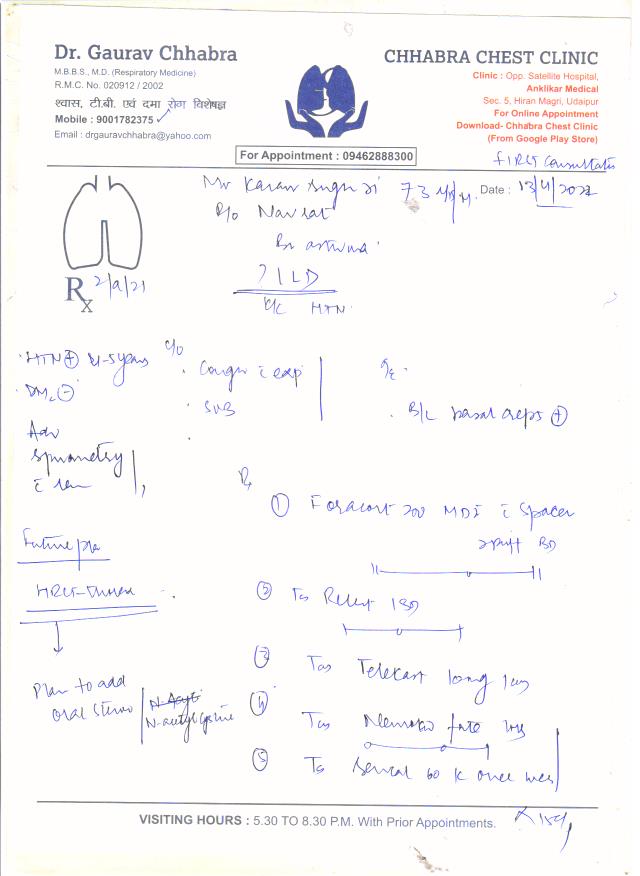 Dr. Gaurav Chhabra
M.B.B.S., M.D. (Respiratory Medicine)
R.M.C. No. 020912 / 2002
श्वास, टी.बी. एवं दमा रोग विशेषज्ञ
Mobile : 9001782375
Email : drgauravchhabra@yahoo.com
CHHABRA CHEST CLINIC
Clinic : Opp. Satellite Hospital,
Anklikar Medical
Sec. 5, Hiran Magri, Udaipur
For Online Appointment
Download- Chhabra Chest Clinic
(From Google Play Store)
For Appointment : 09462888300
First Consultation
Mr Karan Singh Ji 73 yrs/M. Date :
R/o
Br asthma
Rx 2/9/21
? ILD
HTN
HTN ⊕ 4-5 years
DM ⊖
c/o
Cough c exp
SOB
o/e
B/L basal creps ⊕
Adv
Spirometry
Rx
① Foracort 200 MDI c Spacer
2 puff BD
Future plan
HRCT-Thorax
② Tab
③ Tab Telekast
Plan to add
oral
N-acetylcysteine
④ Tab
⑤ 60 K once
VISITING HOURS : 5.30 TO 8.30 P.M. With Prior Appointments.